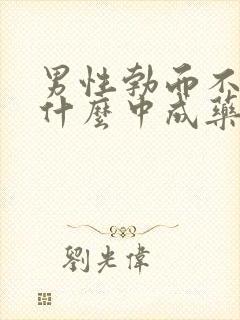 男性勃而不
什麼中成藥
劉光偉